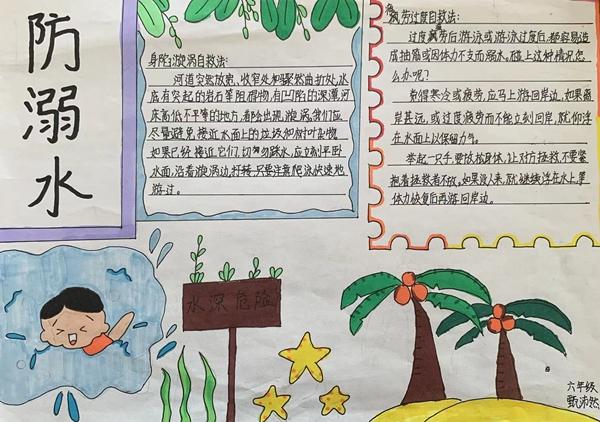 防溺水
身陷漩涡自救法:
河道突然放宽、收窄处和骤然曲折处,水
底有突起的岩石等阻碍物,有凹陷的深潭,河
床高低不平等的地方,都会出现漩涡。我们应
尽量避免接近水面上的垃圾和树叶杂物
如果已经接近,它们,切勿跳水,应立刻平卧
水面,沿着漩涡边,打转只要注意爬泳快速地
游过。
疲劳过度自救法:
过度疲劳后游泳或游泳过度后,都容易造
成抽筋或因体力不支而溺水。碰上这种情况怎
么办呢?
觉得寒冷或疲劳,应马上游回岸边。如果离
岸甚远,或过度疲劳而不能立刻回岸,就仰浮
在水面上以保留力气。
举起一只手,放松身体,让对方拯救,不要紧
抱着拯救者不放。如果没人来,就继续浮在水上,等
体力恢复后再游回岸边。
水深危险
六年级
甄沛然